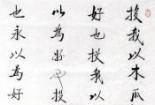 投我以木瓜
好也投我以
以為好也投
也永以為好